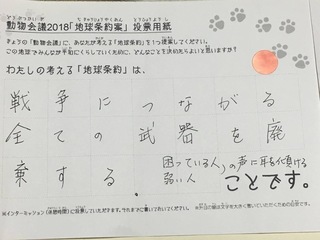 動物会議2018「地球条約案」投票用紙
きょうの「動物会議」に、あなたが考える「地球条約」を1つ提案してください。
この地球でみんなが平和にくらしていくために、どんなことを決めたらよいと思いますか?
わたしの考える「地球条約」は、
戦争につながる
全ての武器を廃
棄する。
困っている人、
弱い人
の声に耳を傾ける
ことです。
※インターミッション(休憩時間)に投票していただきます。それまでに書いておいてください。